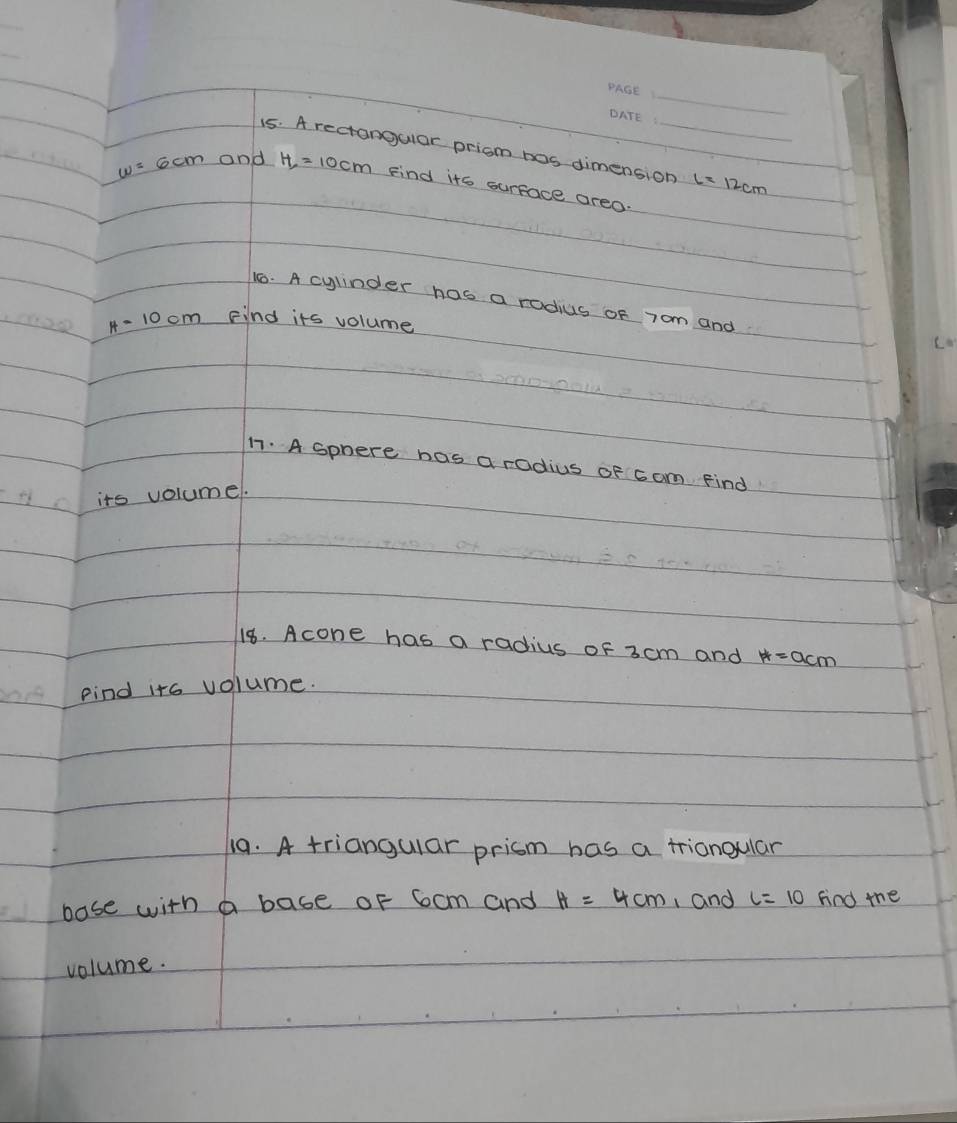 PAGE
DATE
15. A rectangular prism has dimension L= 12cm
W= 6cm and H = 10cm Find its surface area.
16. A cylinder has a radius of 7cm and
H = 10 cm Find its volume
17. A sphere has a radius of 6cm Find
its volume.
18. A cone has a radius of 3cm and H=9cm
Find its volume.
19. A triangular prism has a triangular
base with a base of 6cm and H = 4cm, and L= 10 Find the
volume.